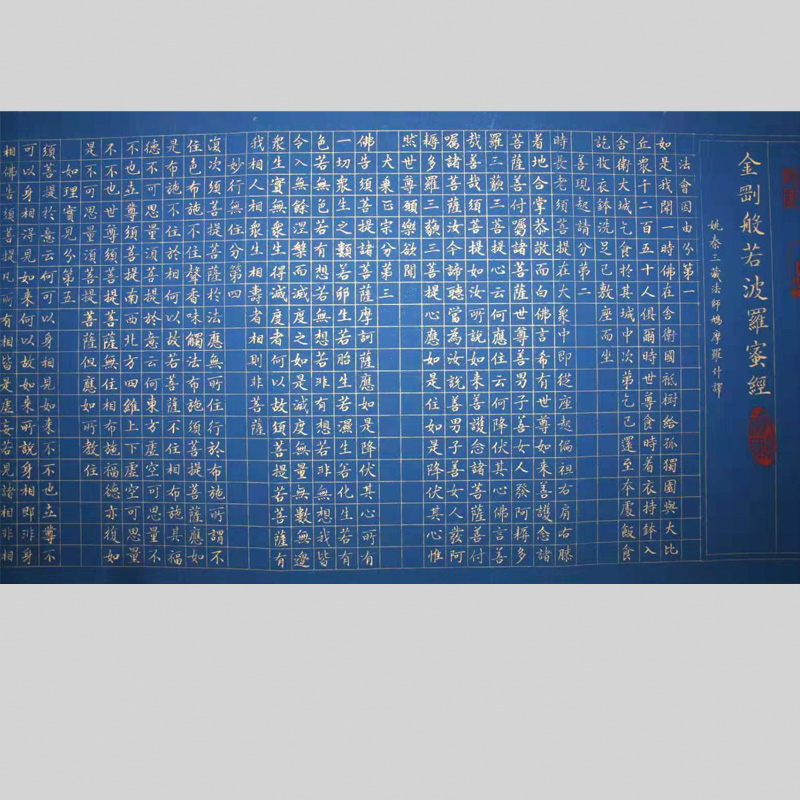 金剛般若波羅蜜經
姚秦三藏法師鳩摩羅什譯
法會因由分第一
如是我聞一時佛在舍衛國祇樹給孤獨園與大比
丘眾千二百五十人俱爾時世尊食時着衣持鉢入
舍衛大城乞食於其城中次第乞已還至本處飯食
訖收衣鉢洗足已敷座而坐
善現起請分第二
時長老須菩提在大眾中即從座起偏袒右肩右膝
着地合掌恭敬而白佛言希有世尊如来善護念諸
菩薩善付囑諸菩薩世尊善男子善女人發阿耨多
羅三藐三菩提心云何應住云何降伏其心佛言善
哉善哉須菩提如汝所說如来善護念諸菩薩善付
囑諸菩薩汝今諦聽當為汝說善男子善女人發阿
耨多羅三藐三菩提心應如是住如是降伏其心惟
然世尊願樂欲聞
大乘正宗分第三
佛告須菩提諸菩薩摩訶薩應如是降伏其心所有
一切眾生之類若卵生若胎生若濕生若化生若有
色若無色若有想若無想若非有想若非無想我皆
令入無餘涅槃而滅度之如是滅度無量無數無邊
眾生實無眾生得滅度者何以故須菩提若菩薩有
我相人相眾生相壽者相則非菩薩
妙行無住分第四
復次須菩提菩薩於法應無所住行於布施所謂不
住色布施不住聲香味觸法布施須菩提菩薩應如
是布施不住於相何以故若菩薩不住相布施其福
德不可思量須菩提於意云何東方虛空可思量不
不也世尊須菩提南西北方四維上下虛空可思量
不不也世尊須菩提菩薩無住相布施福德亦復如
是不可思量須菩提菩薩但應如所教住
如理實見分第五
須菩提於意云何可以身相見如来不不也世尊不
可以身相得見如来何以故如来所說身相即非身
相佛告須菩提凡所有相皆是虛妄若見諸相非相